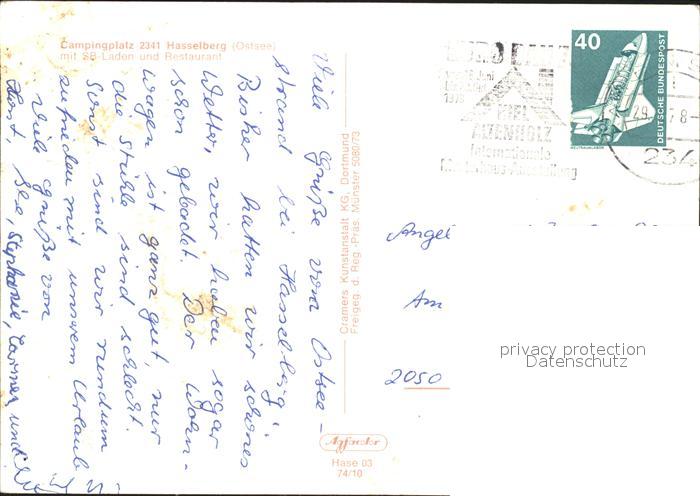 Campingplatz 2341 Hasselberg (Ostsee)
mit SB-Laden und Restaurant
Viele Grüße vom Ostsee-
strand bei Hasselberg!
Bisher hatten wir schönes
Wetter, wir haben sogar
schon gebadet. Der Wohn-
wagen ist ganz gut, nur
die Stühle sind schlecht.
Sonst sind wir rundum
zufrieden mit unserem Urlaub
Viele Grüße von
Horst, Ilse, Stephanie, Carmen und
Cramers Kunstanstalt KG, Dortmund
Freigeg. d. Reg.-Präs. Münster 5080/73
Hase 03
74/10
KIEL
ALTENHOLZ
Internationale
40
DEUTSCHE BUNDESPOST
WELTRAUMLABOR
29.
8-
234
Angel
Am
2050
privacy protection
Datenschutz